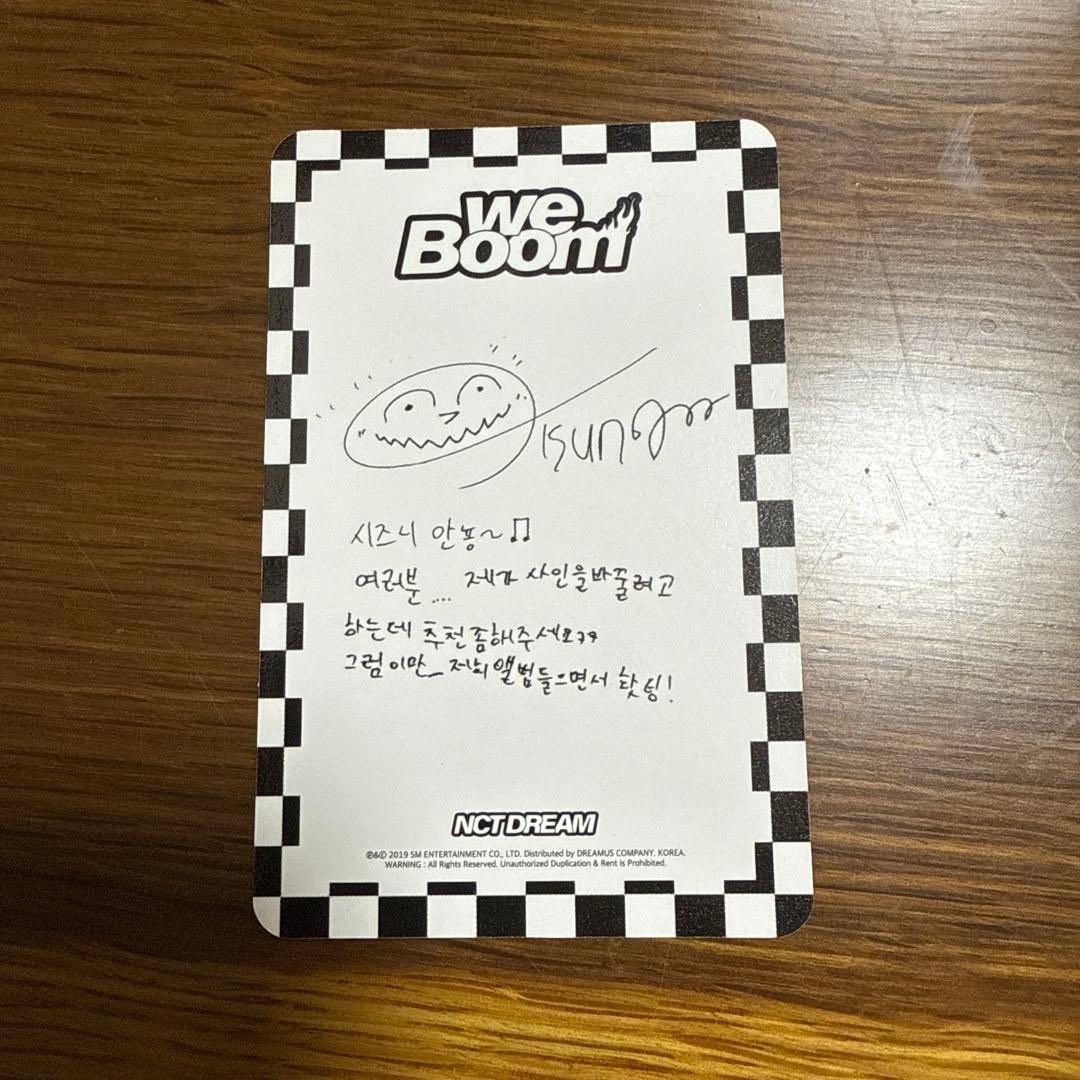 We
Boom
시즈니 안뇽~♫
여러분.... 제가 사인을바꿀려고
하는데 추천좀해주세요ㅋㅋ
그럼이만... 저희앨범들으면서 핫팅!
NCT DREAM
℗&© 2019 SM ENTERTAINMENT CO., LTD. Distributed by DREAMUS COMPANY. KOREA.
WARNING : All Rights Reserved. Unauthorized Duplication & Rent is Prohibited.